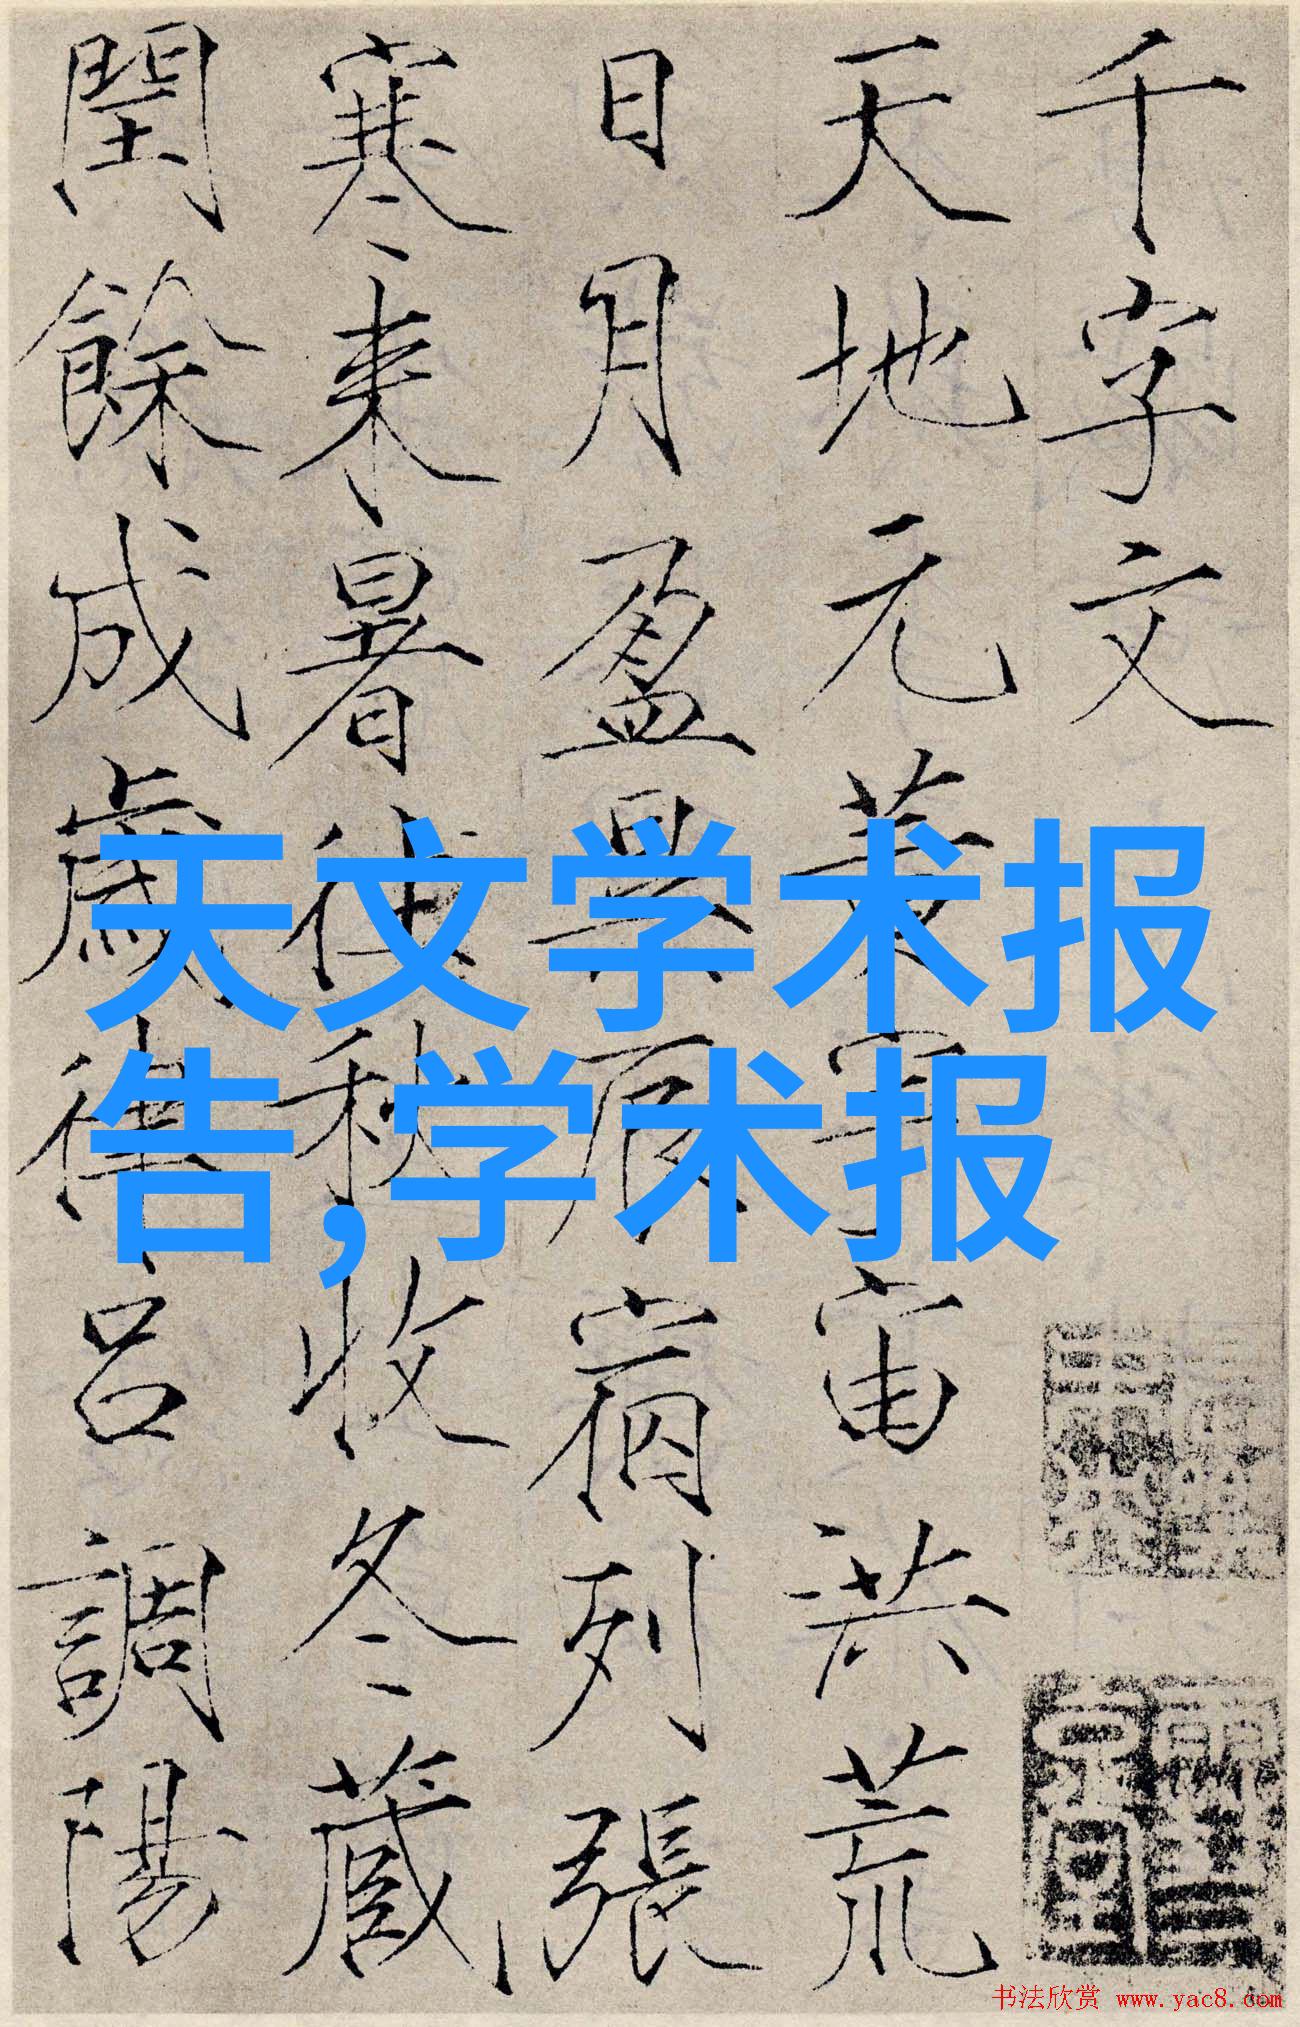 千字文
天地元黄宇宙洪荒
日月盈昃辰宿列張
寒来暑往秋收冬蔵
閏餘成歲律吕調陽
天文学术报
告,学术报
书法欣赏 www.yac8.com